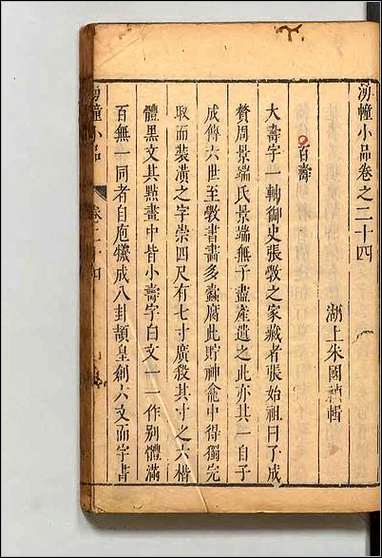 湧幢小品卷之二十四
湖上朱國禎輯
百壽
大壽字一軸御史張敩之家藏者張始祖曰了成
贅周景端氏景端無子盡產遺之此亦其一自子
成傳六世至敩書畵多蠹腐此貯神龕中得獨完
取而裝潢之字崇四尺有七寸廣殺其寸之六楷
體黑文其點畫中皆小壽字白文一一作别體滿
百無一同者自庖犧成八卦頡皇創六文而字書
湧幢小品
卷二十四